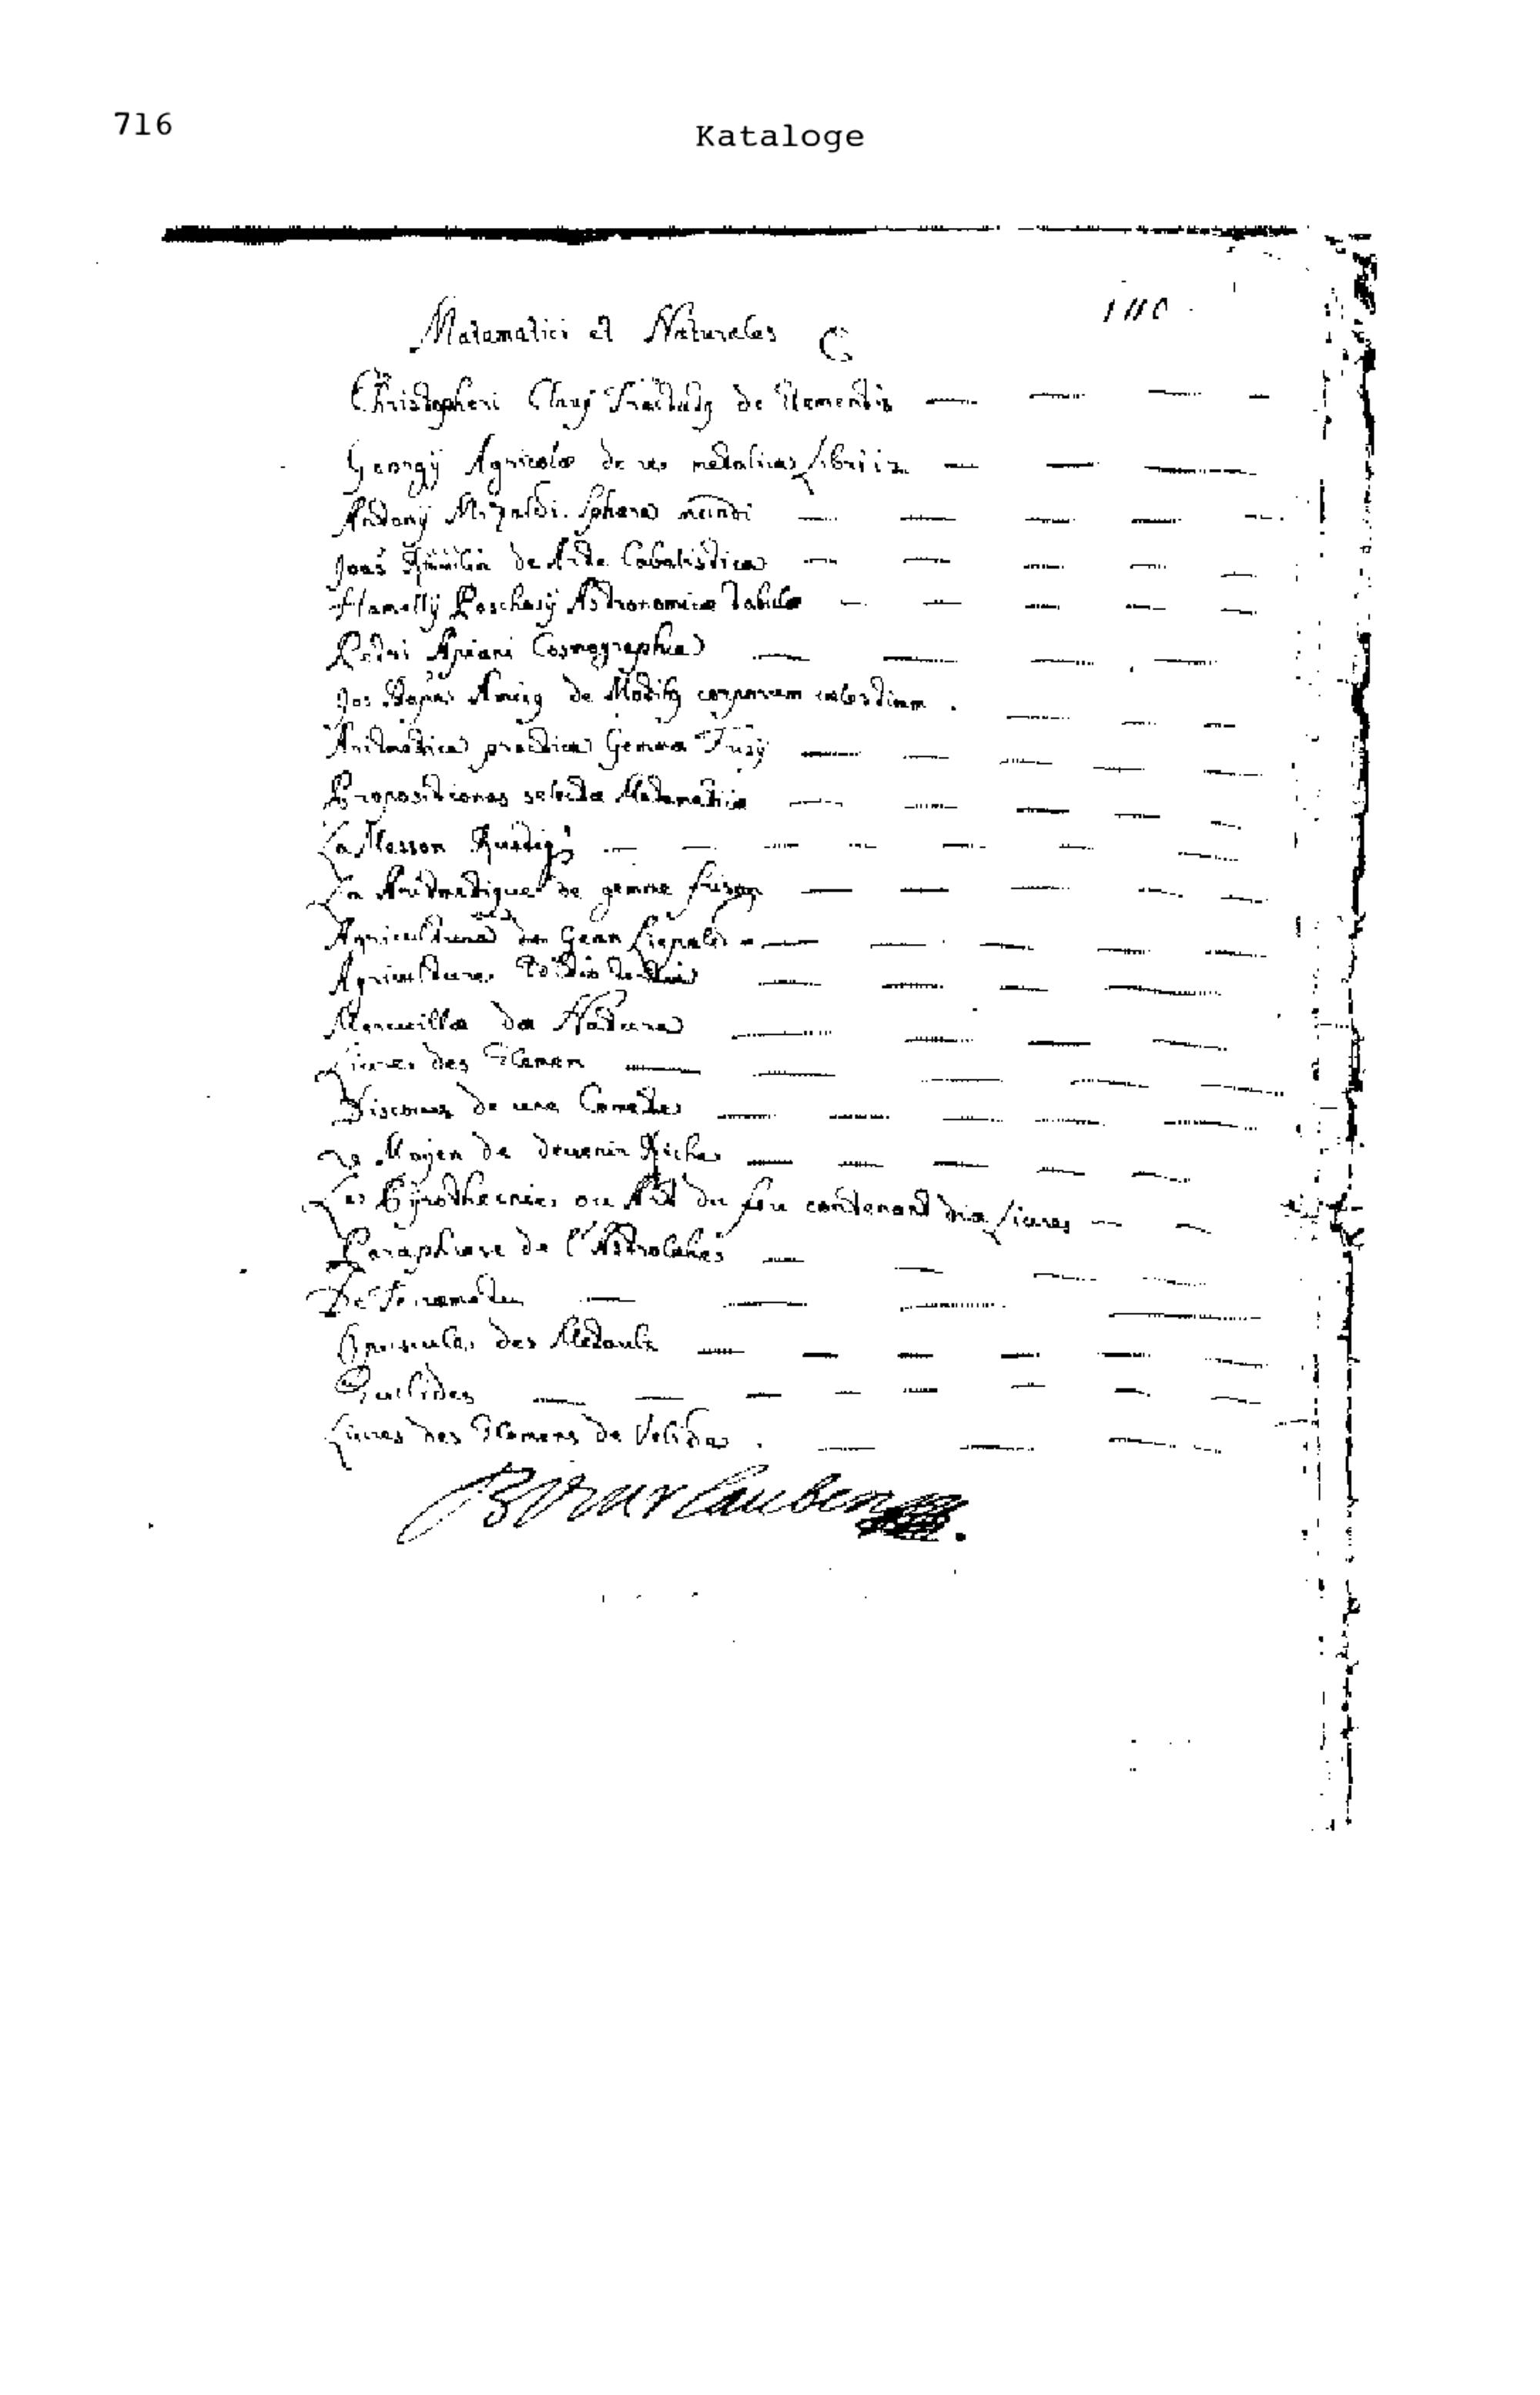 716
Kataloge
Matamatici et Naturales C
Christopheri Clavij Tractatus de Elementis
Georgij Agricolæ de re metalica Libri 12
Antonij Mizaldi Sphera mundi
de Arte Cabalistica
Hamellij Paschasij Astronomicæ tabulæ
Petri Apiani Cosmographia
de Motibus corporum celestium
Aritmetica practica Gemma Frisij
Propositiones selectæ Matematicæ
La Maison Rustique
La Aritmetique de gemme frison
Agriculture de Gean Liepalt
Agriculture
Merueille de Nature
Liures des Elemen
Discours de une Comete
Le Moyen de deuenir Riche
La Pyrothecnie ou Art du feu contenant dix Liures
Paraphrase de l'Astrolabe
De
Opuscules des Metaulx
Euclides
Liures des Elemens de Velide